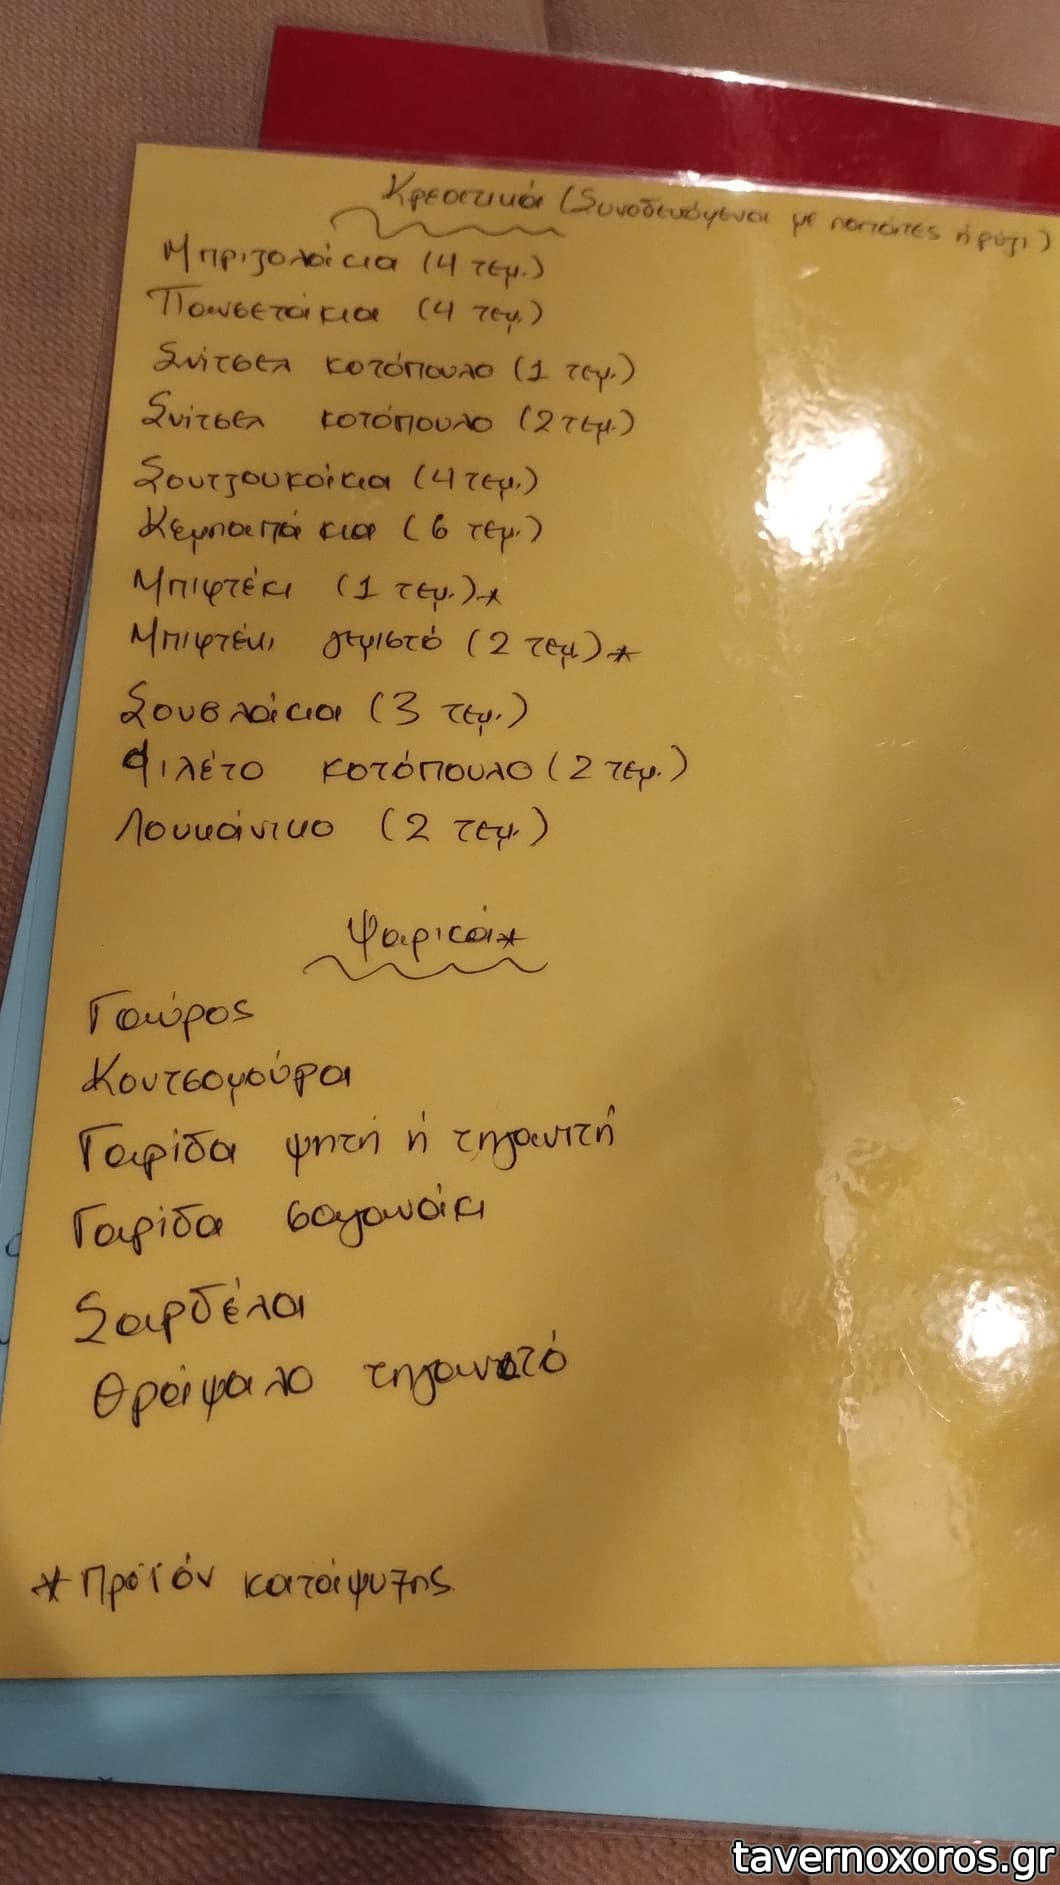 Κρεατικά (Συνοδευόμενα με πατάτες ή ρύζι)
Μπριζολάκια (4 τεμ.)
Πανσετάκια (4 τεμ.)
Σνίτσελ κοτόπουλο (1 τεμ.)
Σνίτσελ κοτόπουλο (2 τεμ.)
Σουτζουκάκια (4 τεμ.)
Κεμπαπάκια (6 τεμ.)
Μπιφτέκι (1 τεμ.)*
Μπιφτέκι γεμιστό (2 τεμ)*
Σουβλάκια (3 τεμ.)
Φιλέτο κοτόπουλο (2 τεμ.)
Λουκάνικο (2 τεμ.)
Ψαρικά*
Γαύρος
Κουτσομούρα
Γαρίδα ψητή ή τηγανιτή
Γαρίδα σαγανάκι
Σαρδέλα
Θράψαλο τηγανιτό
*Προϊόν κατάψυξης
tavernoxoros.gr